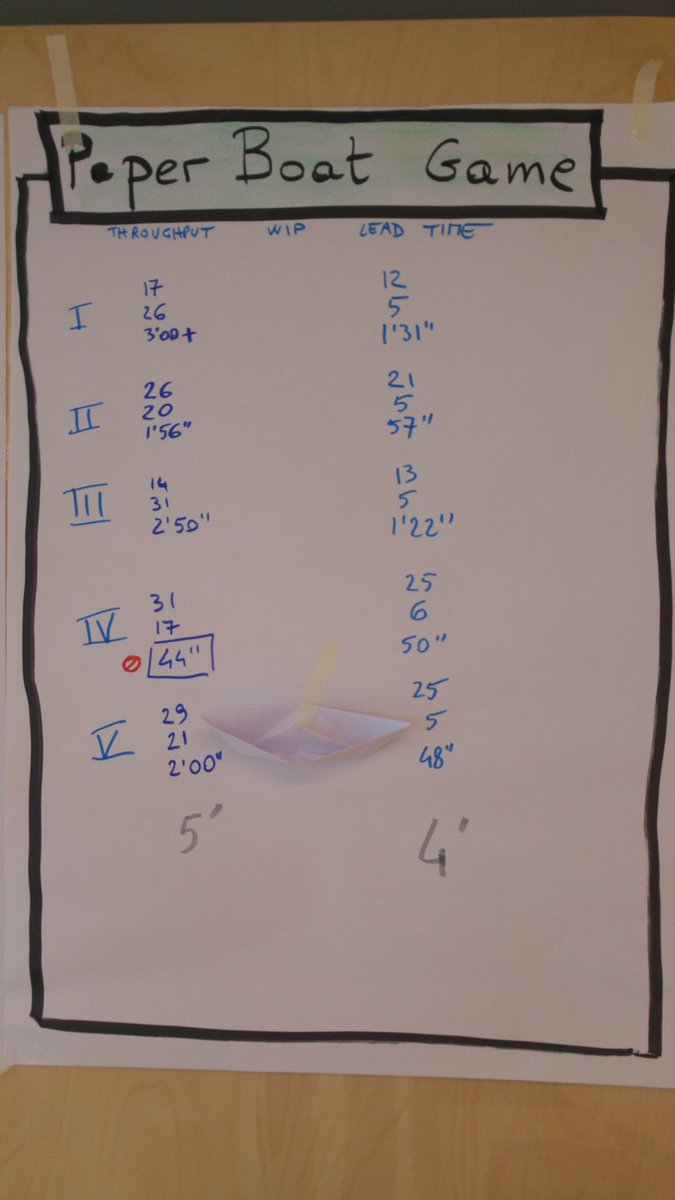 Paper Boat Game
THROUGHPUT WIP LEAD TIME
I
17 12
26 5
3'00+ 1'31"
II
26 21
20 5
1'56" 57"
III
14 13
31 5
2'50" 1'22"
IV
31 25
17 6
44" 50"
V
29 25
21 5
2'00" 48"
5' 4'